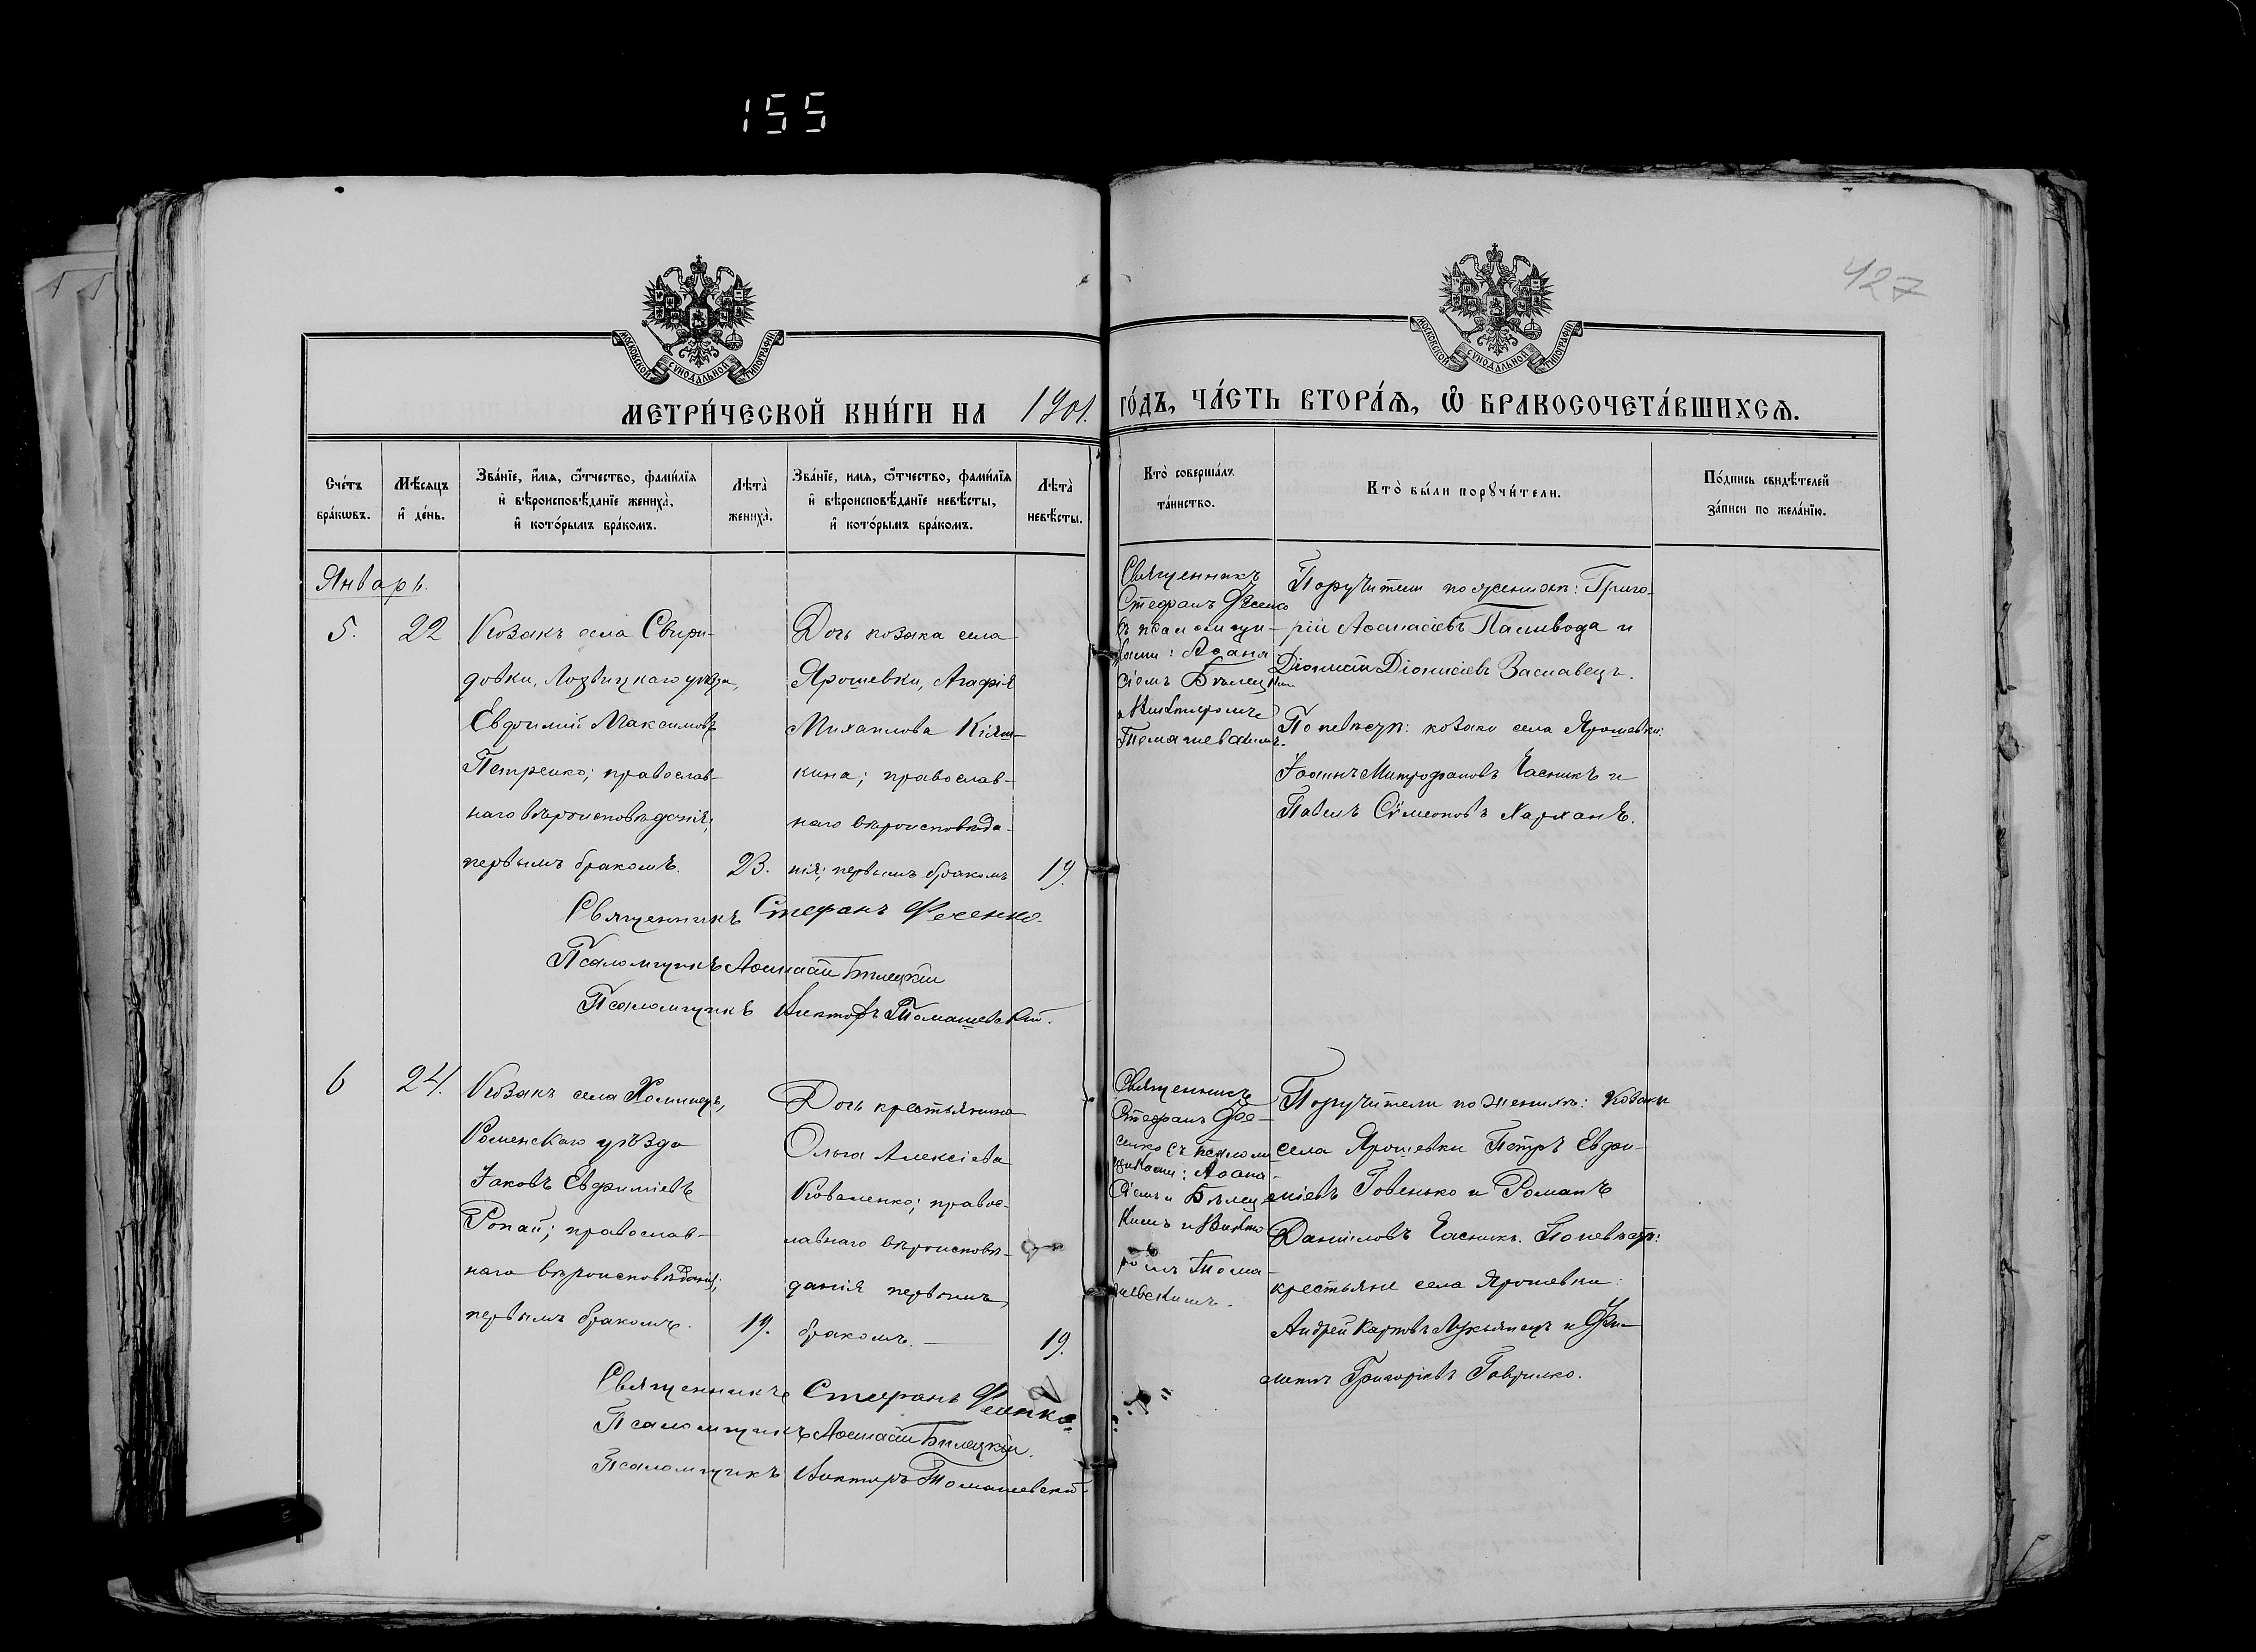 155
427
МОСКОВСКОЙ СѴНОДАЛЬНОЙ ТИПОГРАФІИ
МОСКОВСКОЙ СѴНОДАЛЬНОЙ ТИПОГРАФІИ
МЕТРИ́ЧЕСКОЙ КНИ́ГИ НА 1901. ГО́ДЪ, ЧА́СТЬ ВТОРА́Ѧ, Ѽ БРАКОСОЧЕТА́ВШИХСѦ.
Сче́тъ
бра́кωвъ.
Мѣ́сяцъ
и҆ де́нь.
Зва́нїе, и҆́мѧ, ѻ҆́тчество, фами́лїѧ
и҆ вѣроисповѣ́данїе жениха̀,
и҆ кото́рымъ бра́комъ.
Лѣта̀
жениха̀.
Зва́нїе, имѧ, ѻ҆́тчество, фами́лїѧ
и҆ вѣроисповѣ́данїе невѣ́сты,
и҆ кото́рымъ бра́комъ.
Лѣта̀
невѣ́сты.
Кто̀ соверша́лъ
та́инство.
Кто̀ бы́ли порꙋчи́тели.
По́дпись свидѣ́телей
за́писи по жела́нїю.
Январь.
5.
22
Козакъ села Свири-
довки, Лохвицкаго уѣзда,
Евфимій Максимовъ
Петренко; православ-
наго вѣроисповѣданія;
первымъ бракомъ.
23.
Дочь козака села
Ярошевки, Агафія
Михаилова Кіяш-
кина; православ-
наго вѣроисповѣда-
нія; первымъ бракомъ
19.
Священникъ
Стефанъ Фесенко
съ псаломщи-
ками: Аѳана
сіемъ Бѣлецким
и Викторомъ
Томашевскимъ.
Поручители по женихѣ: Григо-
рій Аѳанасіевъ Паливода и
Діонисій Діонисіевъ Заславецъ.
По невѣстѣ: козаки села Ярошевки:
Іоаннъ Митрофановъ Часникъ и
Павелъ Сѵмеоновъ Харханъ.
Священникъ Стефанъ Фесенко.
Псаломщикъ Аѳанасій Бѣлецкій
Псаломщикъ Викторъ Томашевскій.
6
24.
Козакъ села Хоминецъ,
Роменскаго уѣзда
Іаковъ Евфиміевъ
Ропай; православ-
наго вѣроисповѣданія;
первымъ бракомъ.
19.
Дочь крестьянина
Ольга Алексіева
Коваленко; правос-
лавнаго вѣроисповѣ-
данія первымъ
бракомъ.
19.
Священникъ
Стефанъ Фе-
сенко съ псалом
щиками: Аѳана-
сіемъ Бѣлец
кимъ и Викто
ромъ Тома-
шевскимъ.
Поручители по женихѣ: козаки
села Ярошевки Петръ Евфи-
міевъ Говенько и Романъ
Даніиловъ Часникъ. По невѣстѣ:
крестьяне села Ярошевки:
Андрей Карповъ Лукьянецъ и Фи-
Григоріевъ Гаврилко.
Священникъ Стефанъ Фесенко.
Псаломщикъ Аѳанасій Бѣлецкій.
Псаломщикъ Викторъ Томашевскій